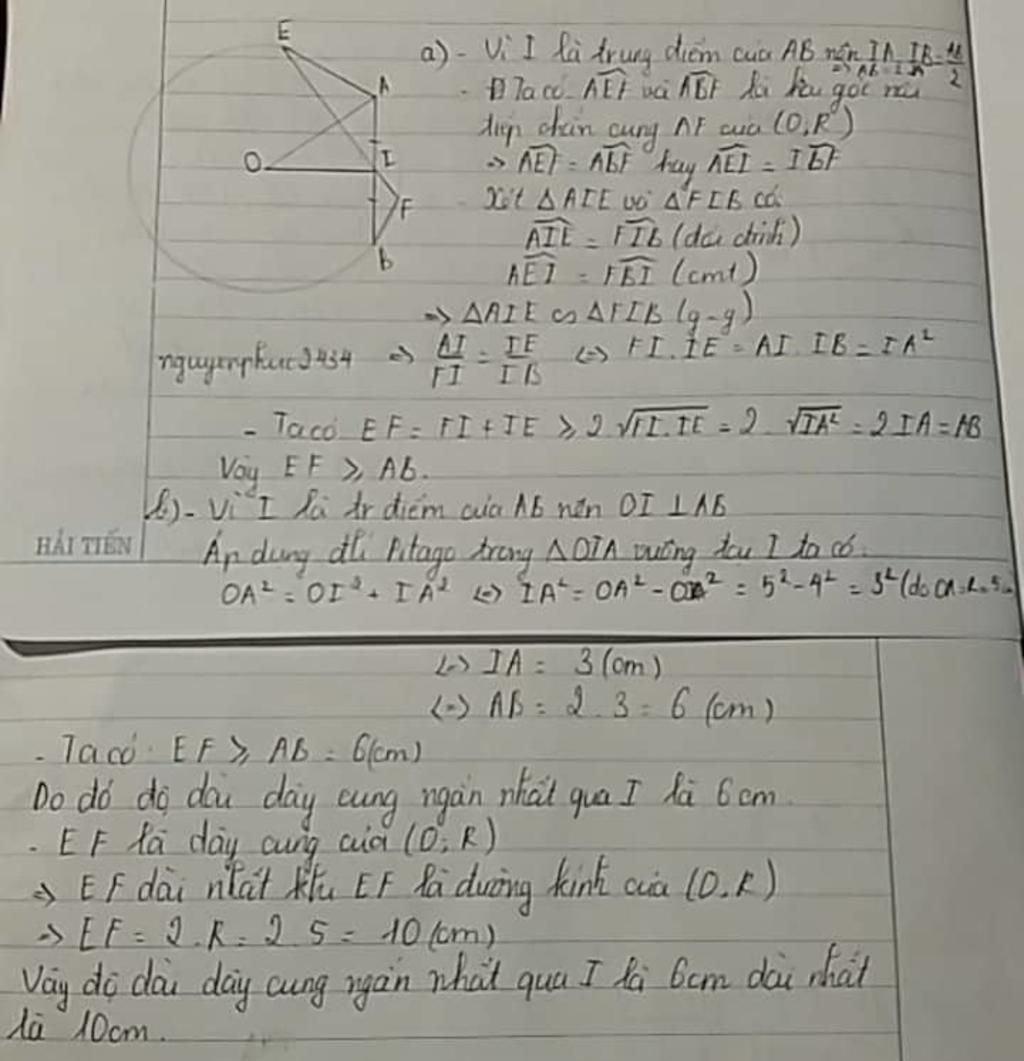 E
A
O
I
F
B
a) - Vì I là trung điểm của AB nên IA = IB = AB/2
=> AB = 2IA
- Ta có AEF và ABF là hai góc nội
tiếp chắn cung AF của (O, R)
=> AEF = ABF hay AEI = IBF
- Xét △AIE và △FIB có
AIE = FIB (đối đỉnh)
AEI = FBI (cmt)
=> △AIE ∽ △FIB (g-g)
nguyenphuc2434
=> AI/FI = IE/IB <=> FI.IE = AI.IB = IA²
- Ta có EF = FI + IE ≥ 2√FI.IE = 2.√IA² = 2IA = AB
Vậy EF ≥ AB.
b) - Vì I là tr điểm của AB nên OI ⊥ AB
HẢI TIẾN
Áp dụng đli Pitago trong △OIA vuông tại I ta có
OA² = OI² + IA² <=> IA² = OA² - OI² = 5² - 4² = 3² (do OA = R = 5cm
<=> IA = 3 (cm)
<=> AB = 2.3 = 6 (cm)
- Ta có EF ≥ AB = 6(cm)
Do đó độ dài dây cung ngắn nhất qua I là 6cm
- EF là dây cung của (O; R)
=> EF dài nhất khi EF là đường kính của (O.R)
=> EF = 2.R = 2.5 = 10 (cm)
Vậy độ dài dây cung ngắn nhất qua I là 6cm dài nhất
là 10cm.